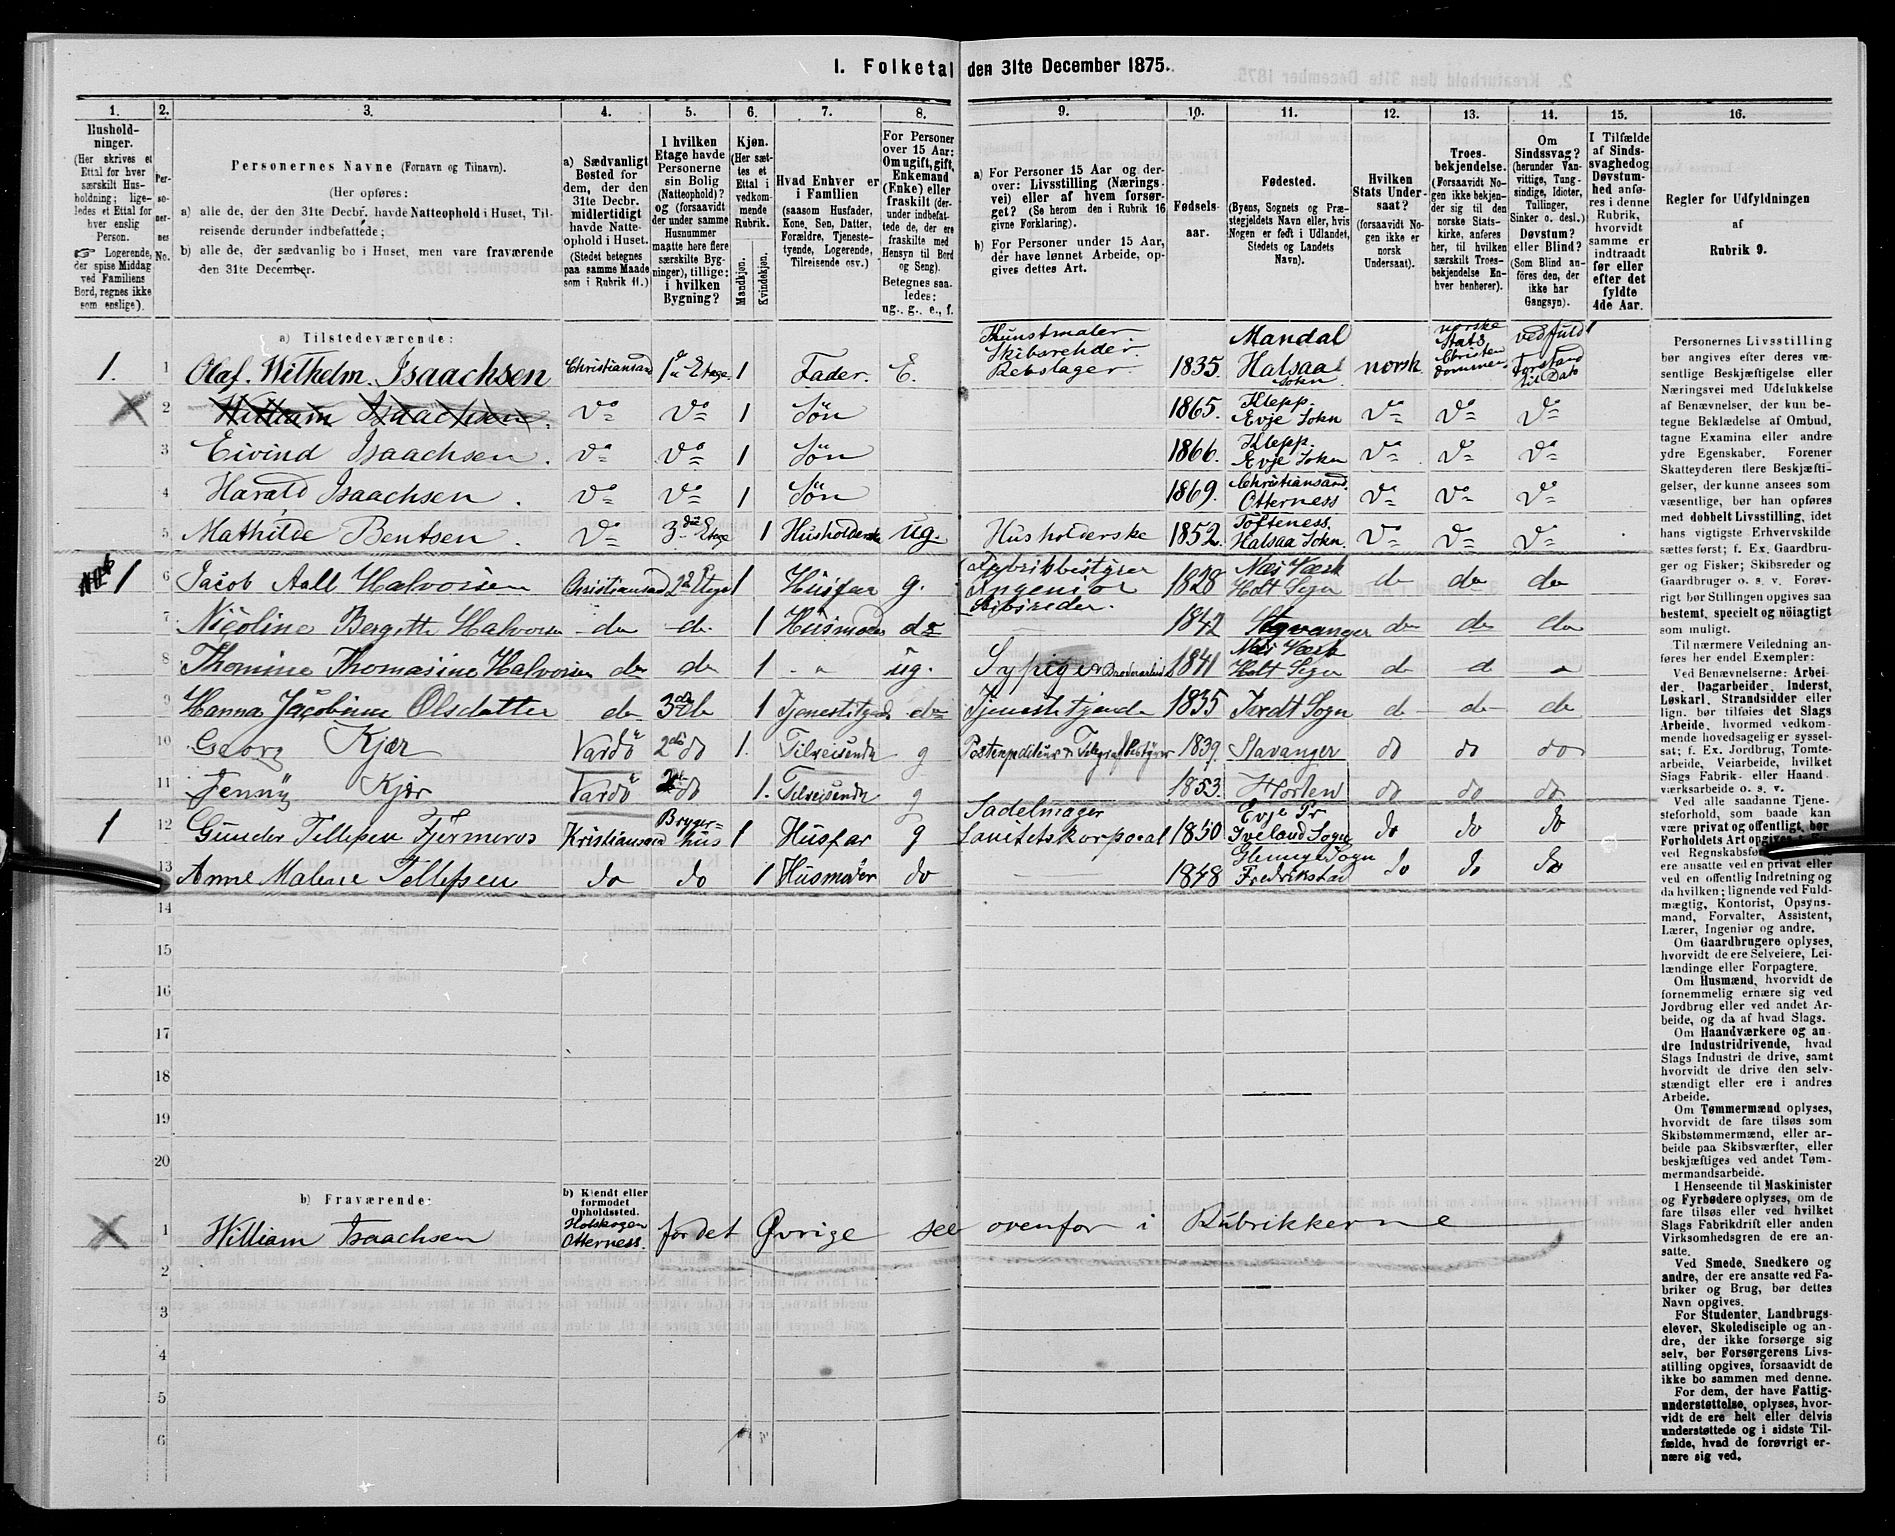 1. Folketal den 31te December 1875.
1. 2. 3. 4. 5. 6. 7. 8. 9. 10. 11. 12. 13. 14. 15. 16.
Hushold-
ninger.
(Her skrives et
Ettal for hver
særskilt Hus-
holdning; lige-
ledes et Ettal for
hver enslig
Person.
☞ Logerende,
der spise Middag
ved Familiens
Bord, regnes ikke
som enslige).
Per-
so-
ner-
nes
No.
Personernes Navne (Fornavn og Tilnavn).
(Her opføres:
a) alle de, der den 31te Decbr. havde Natteophold i Huset, Til-
reisende derunder indbefattede;
b) alle de, der sædvanlig bo i Huset, men vare fraværende
den 31te December.
a) Sædvanligt
Bosted for
dem, der den
31te Decbr.
midlertidigt
havde Natte-
ophold i Huset.
(Stedet betegnes
paa samme Maade
som i Rubrik 11.)
I hvilken
Etage havde
Personerne
sin Bolig
(Natteophold)?
og (forsaavidt
der under samme
Husnummer
maatte høre flere
særskilte Byg-
ninger), tillige:
i hvilken
Bygning?
Kjøn.
(Her sæt-
tes et
Ettal i
vedkom-
mende
Rubrik.
Mandkjøn.
Kvindekjøn.
Hvad Enhver er
i Familien
(saasom Husfader,
Kone, Søn, Datter,
Forældre, Tjeneste-
tyende, Logerende,
Tilreisende osv.)
For Personer
over 15 Aar:
Om ugift, gift,
Enkemand
(Enke) eller
fraskilt (der-
under indbefat-
tede de, der ere
fraskilte med
Hensyn til Bord
og Seng).
Betegnes saa-
ledes:
ug., g., e., f.
a) For Personer 15 Aar og der-
over: Livsstilling (Nærings-
vei) eller af hvem forsør-
get? (Se herom den i Rubrik 16
givne Forklaring).
b) For Personer under 15 Aar,
der have lønnet Arbeide, op-
gives dettes Art.
Fødsels-
aar.
Fødested.
(Byens, Sognets og Præ-
stegjeldets Navn eller, hvis
Nogen er født i Udlandet,
Stedets og Landets
Navn).
Hvilken
Stats Under-
saat?
(forsaavidt No-
gen ikke er
norsk
Undersaat).
Troes-
bekjendelse.
(Forsaavidt No-
gen ikke beken-
der sig til den
norske Stats-
kirke, anføres
her, til hvilken
særskilt Troes-
bekjendelse En-
hver henhører).
Om
Sindssvag?
(herunder Van-
vittige, Tung-
sindige, Idioter,
Tullinger,
Sinker o. desl.)
Døvstum?
eller Blind?
(Som Blind an-
føres den, der
ikke har
Gangsyn).
I Tilfælde
af Sinds-
svaghed og
Døvstum-
hed anfø-
res i denne
Rubrik,
hvorvidt
samme er
indtraadt
før eller
efter det
fyldte
4de Aar.
Regler for Udfyldningen
af
Rubrik 9.
a) Tilstedeværende:
1. 1 Olaf. Wilhelm. Isaachsen Christiansand 1ste Etage 1 Fader. E. Kunstmaler Skibsrehder. Rebslager. 1835. Mandal Halsaa Sokn norsk norske Stats Christendommen ved fuld Forstand til Dato
2 William Isaachsen. Do Do 1 Søn 1865. Klepp. Evje Sokn Do Do Do
3 Eivind Isaachsen. Do Do 1 Søn 1866. Klepp. Evje Sokn Do Do Do
4 Harald Isaachsen. Do Do 1 Søn 1869. Christiansand. Otterness Do Do Do
5 Mathilde Bentsen. Do 3die Etage 1 Husholderske ug. Husholderske 1852. Tofteness. Halsaa Sokn. Do Do Do
1 6 Jacob Aall Halvorsen Christiansand 2d Etage 1 Husfar g. Fabrikbestyrer Ingeniør Skibsreder. 1828 Næs Værk Holt Sogn do do do
7 Nicoline Bergitte Halvorsen do do. 1 Husmoder do 1842 Stavanger do do do
8 Thomine Thomasine Halvorsen do do 1 " ug. Sypige 1841 Næs Værk Holt Sogn do d "
9 Hanna Jacobine Olsdatter do 3die do 1 Tjenestetyende do Tjenestetyende 1835 Sogn d do do
10 Georg Kjær Vardö 2den do 1. Tilreisende g Postexpeditør & Telegrafbestyrer 1839. Stavanger do do do
11 Jenny Kjær Vardö do 1. Tilreisende g 1853. Horten do do do
1 12 Gunder Tellefsen Fjermeros Kristiansand Bryger-hus 1 Husfar g Sadelmager Sanitetskorporal 1850 Evje Pr Iveland Sogn do do do
13 Anne Malene Tellefsen do do 1 Husmoder do — 1848 Glemmge Sogn Fredrikstad do do do
14
15
16
17
18
19
20
b) Fraværende:
b) Kjendt eller
formodet
Opholdssted.
1 William Isaachsen Otterness. for det Øvrige see ovenfor i Rubrikkerne
2
3
4
5
6
Personernes Livsstilling
bør angives efter deres væ-
sentlige Beskjæftigelse eller
Næringsvei med Udelukkelse
af Benævnelser, der kun be-
tegne Beklædelse af Ombud,
tagne Examina eller andre
ydre Egenskaber. Forener
Skatteyderen flere Beskjæfti-
gelser, der kunne ansees som
væsentlige, bør han opføres
med dobbelt Livsstilling, idet
hans vigtigste Erhvervskilde
sættes først; f. Ex. Gaardbru-
ger og Fisker; Skibsreder og
Gaardbruger o. s. v. Forøv-
rigt bør Stillingen opgives saa
bestemt, specielt og nöiagtigt
som muligt.
Til nærmere Veiledning an-
føres her endel Exempler:
Ved Benævnelserne: Arbei-
der, Dagarbeider, Inderst,
Løskarl, Strandsidder eller
lign. bør tilføies det Slags
Arbeide, hvormed vedkom-
mende hovedsagelig er syssel-
sat; f. Ex. Jordbrug, Tomte-
arbeide, Veiarbeide, hvilket
Slags Fabrik- eller Haand-
værksarbeide o. s. v.
Ved alle saadanne Tjene-
steforhold, som baade kan
være privat og offentlig, bør
Forholdets Art opgives,
ved Regnskabsfø
ere ansatte ved en privat eller
ved en offentlig Indretning og
da hvilken; lignende ved Fuld-
mægtig, Kontorist, Opsyns-
mand, Forvalter, Assistent,
Lærer, Ingeniør og andre.
Om Gaardbrugere oplyses,
hvorvidt de ere Selveiere, Lei-
lændinge eller Forpagtere.
Om Husmænd, hvorvidt de
fornemmelig ernære sig ved
Jordbrug eller ved andet Ar-
beide, og da af hvad Slags.
Om Haandværkere og an-
dre Industridrivende, hvad
Slags Industri de drive, samt
hvorvidt de drive den selv-
stændigt eller ere i andres
Arbeide.
Om Tømmermænd oplyses,
hvorvidt de fare tilsøs som
Skibstømmermænd, eller ar-
beide paa Skibsværfter, eller
beskjæftiges ved andet Tøm-
mermandsarbeide.
I Henseende til Maskinister
og Fyrbødere oplyses, om de
fare tilsøs eller ved hvilket
Slags Fabrikdrift eller anden
Virksomhedsgren de ere an-
satte.
Ved Smede, Snedkere og
andre, der ere ansatte ved Fa-
briker og Brug, bør dettes
Navn opgives.
For Studenter, Landbrugs-
elever, Skoledisciple og an-
dre, der ikke forsørge sig
selv, bør Forsørgerens Livs-
stilling opgives, forsaavidt de
ikke bo sammen med denne.
For dem, der have Fattig-
understøttelse, oplyses, hvor-
vidt de ere helt eller delvis
understøttede og i sidste Til-
fælde, hvad de forøvrigt er-
nære sig ved.